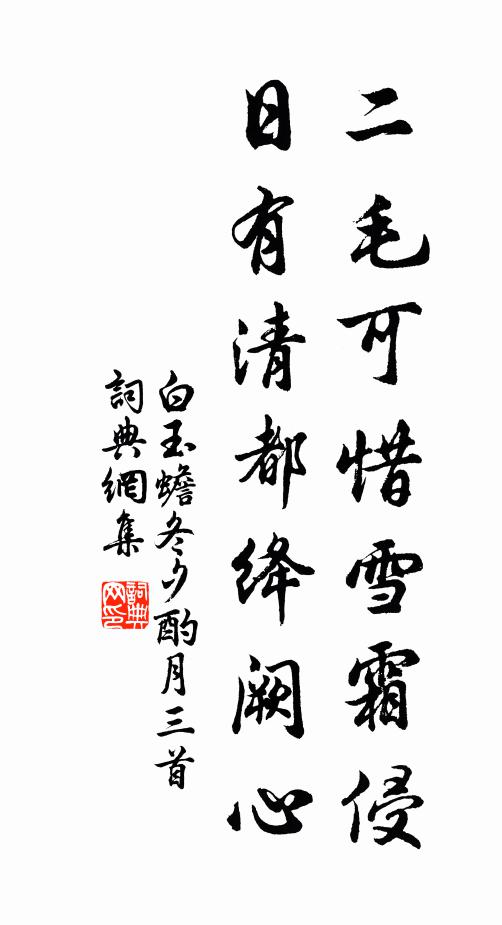 二毛可惜雪霜侵
日有清都絳阙心
白玉蟾冬夕酌月三首
詞典網集
詞典网印